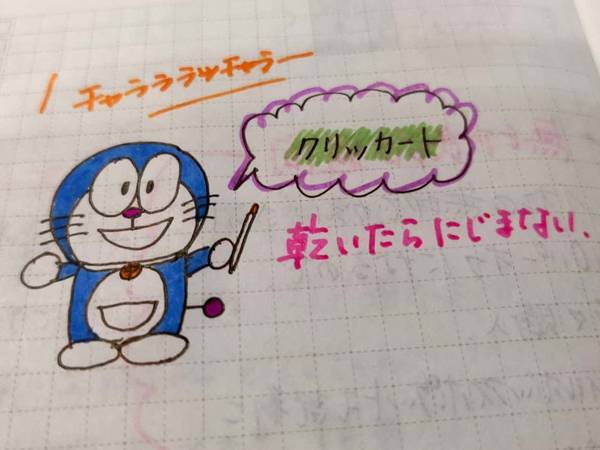 チャラララッチャラー
クリッカート
乾いたらにじまない.